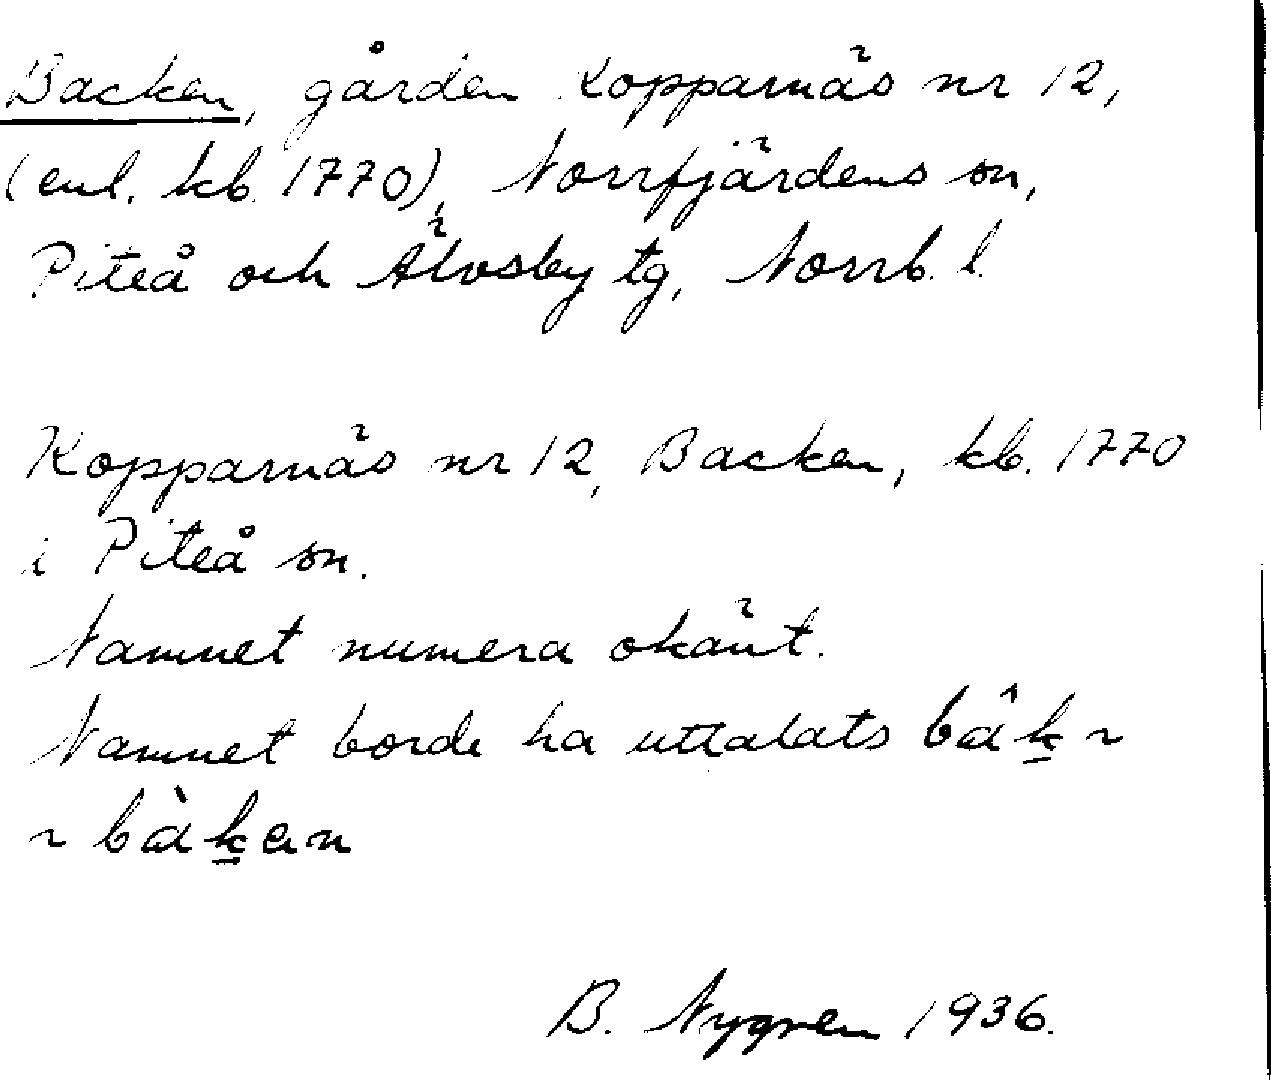 Backen, gården Kopparnäs nr 12,
(enl. kb. 1770), Norrfjärdens sn,
Piteå och Älvsby tg, Norrb. l.
Kopparnäs nr 12, Backen, kb. 1770
i Piteå sn.
Namnet numera okänt.
Namnet borde ha uttalats bâḵ ~
~ bàḵen
B. Nygren 1936.